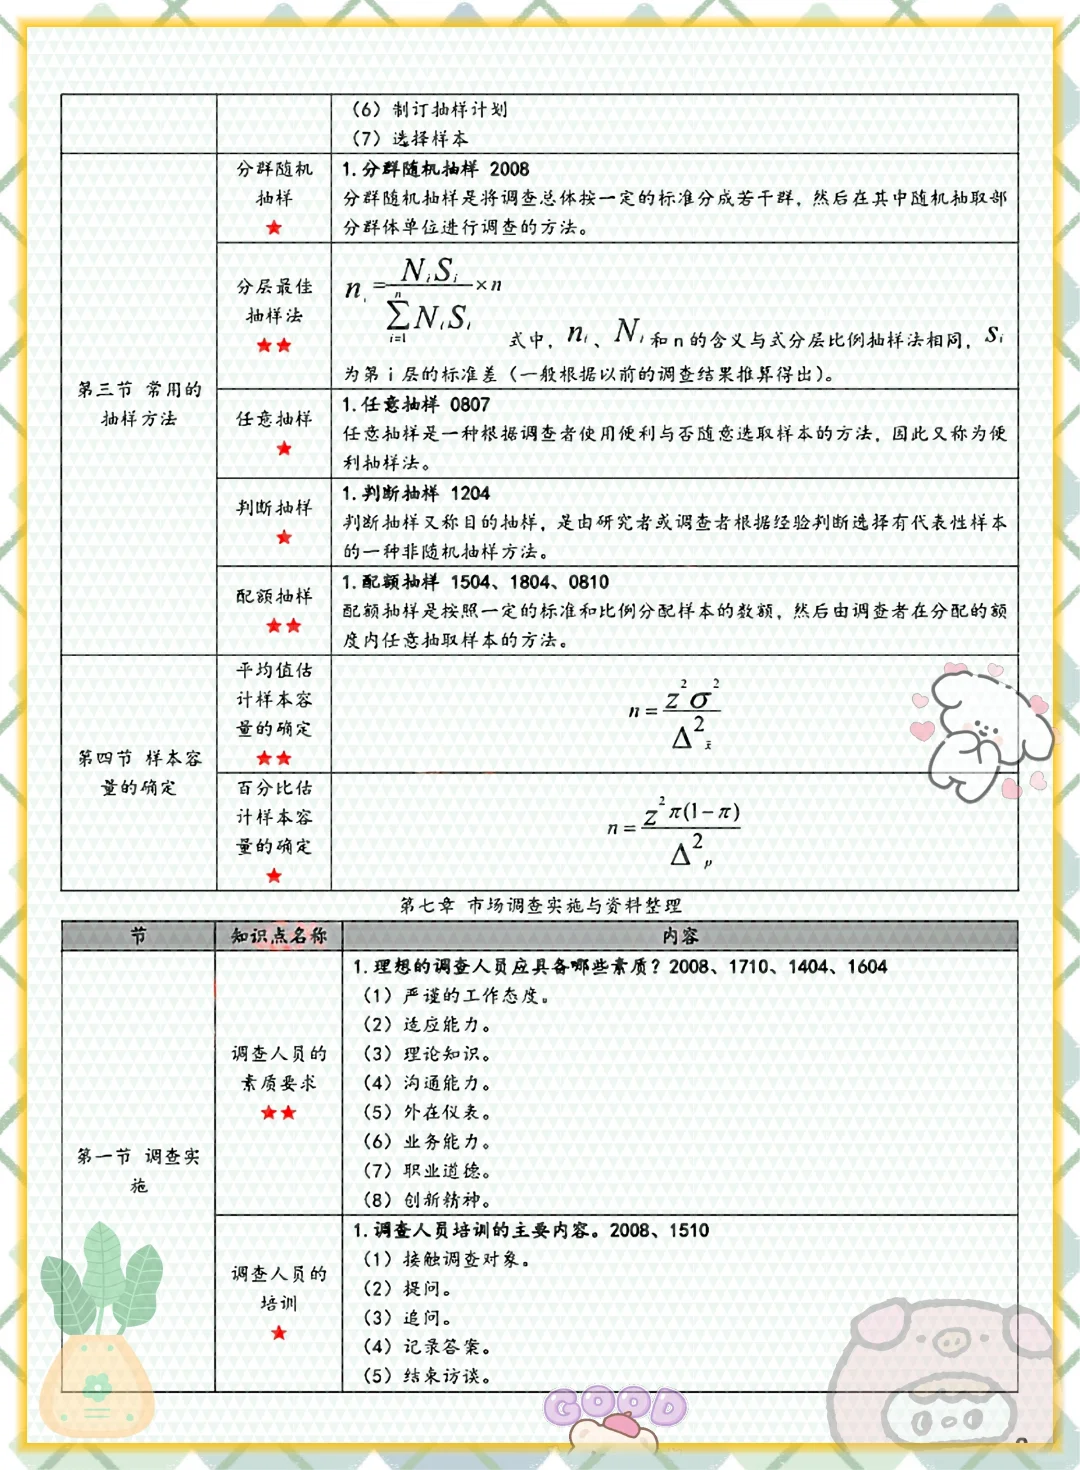 (6) 制订抽样计划
(7) 选择样本
第三节 常用的
抽样方法
分群随机
抽样
★
1.分群随机抽样 2008
分群随机抽样是将调查总体按一定的标准分成若干群，然后在其中随机抽取部
分群体单位进行调查的方法。
分层最佳
抽样法
★★
n_i = N_i S_i / ∑_{i=1}^{n} N_i S_i × n
式中，n_i、N_i 和 n 的含义与式分层比例抽样法相同，S_i
为第 i 层的标准差（一般根据以前的调查结果推算得出）。
任意抽样
★
1.任意抽样 0807
任意抽样是一种根据调查者使用便利与否随意选取样本的方法，因此又称为便
利抽样法。
判断抽样
★
1.判断抽样 1204
判断抽样又称目的抽样，是由研究者或调查者根据经验判断选择有代表性样本
的一种非随机抽样方法。
配额抽样
★★
1.配额抽样 1504、1804、0810
配额抽样是按照一定的标准和比例分配样本的数额，然后由调查者在分配的额
度内任意抽取样本的方法。
第四节 样本容
量的确定
平均值估
计样本容
量的确定
★★
n = z²σ² / Δ²_x̄
百分比估
计样本容
量的确定
★
n = z²π(1−π) / Δ²_p
第七章 市场调查实施与资料整理
节 知识点名称 内容
第一节 调查实
施
调查人员的
素质要求
★★
1.理想的调查人员应具备哪些素质？2008、1710、1404、1604
(1) 严谨的工作态度。
(2) 适应能力。
(3) 理论知识。
(4) 沟通能力。
(5) 外在仪表。
(6) 业务能力。
(7) 职业道德。
(8) 创新精神。
调查人员的
培训
★
1.调查人员培训的主要内容。2008、1510
(1) 接触调查对象。
(2) 提问。
(3) 追问。
(4) 记录答案。
(5) 结束访谈。
GOOD